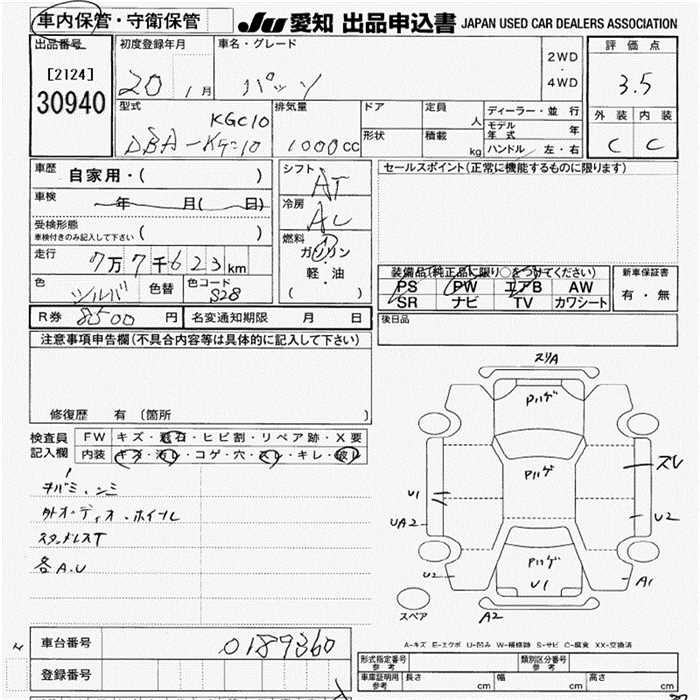 車内保管・守衛保管 JU 愛知 出品申込書 JAPAN USED CAR DEALERS ASSOCIATION
出品番号 初度登録年月 車名・グレード 2WD ・ 4WD 評価点
[2124] 20 1月 パッソ 3.5
30940
型式 KGC10 排気量 ドア 定員 人 ディーラー・並行 外装 内装
DBA-KGC10 1000cc 形状 積載 kg モデル年式 年 C C
ハンドル 左・右
車歴 自家用・( ) シフト AT セールスポイント(正常に機能するものに限ります)
車検 年 月( 日) 冷房 AC
受検形態
車検付きのみ記入して下さい ( ) 燃料
ガソリン
走行 7万7千623km 軽・油
( )
装備品(純正品に限り○をつけてください) 新車保証書
色 シルバ 色替 色コード S28 PS PW エアB AW 有・無
SR ナビ TV カワシート
R券 8500円 名変通知期限 月 日 後日品
注意事項申告欄(不具合内容等は具体的に記入して下さい)
修復歴 有 (箇所 )
検査員 FW キズ・飛石・ヒビ割・リペア跡・X要
記入欄 内装 キズ・汚レ・コゲ・穴・スレ・キレ・破レ
外オーディオ・ホイール
スタッドレスT
各A.U
スリA
Pハゲ
Pハゲ
スレ
U1
UA2
U2
Pハゲ
U1
U2
A1
A2
スペア
A-キズ E-エクボ U-凹み W-補修跡 S-サビ C-腐食 XX-交換済
車台番号 0189360
登録番号
形式指定番号 参考 類別区分番号 参考
車庫証明用 参考 長さ cm 幅 cm 高さ cm